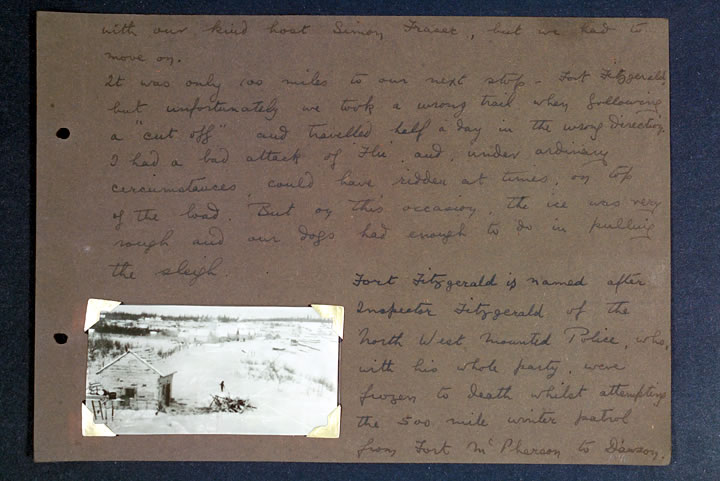 with our kind host Simon Fraser, but we had to
move on.
It was only 100 miles to our next stop - Fort Fitzgerald,
but unfortunately we took a wrong trail when following
a "cut off" and travelled half a day in the wrong direction.
I had a bad attack of Flu, and, under ordinary
circumstances, could have ridden at times, on top
of the load. But on this occasion, the ice was very
rough and our dogs had enough to do in pulling
the sleigh.
Fort Fitzgerald is named after
Inspector Fitzgerald of the
North West Mounted Police, who,
with his whole party, were
frozen to death whilst attempting
the 500 mile winter patrol
from Fort McPherson to Dawson.